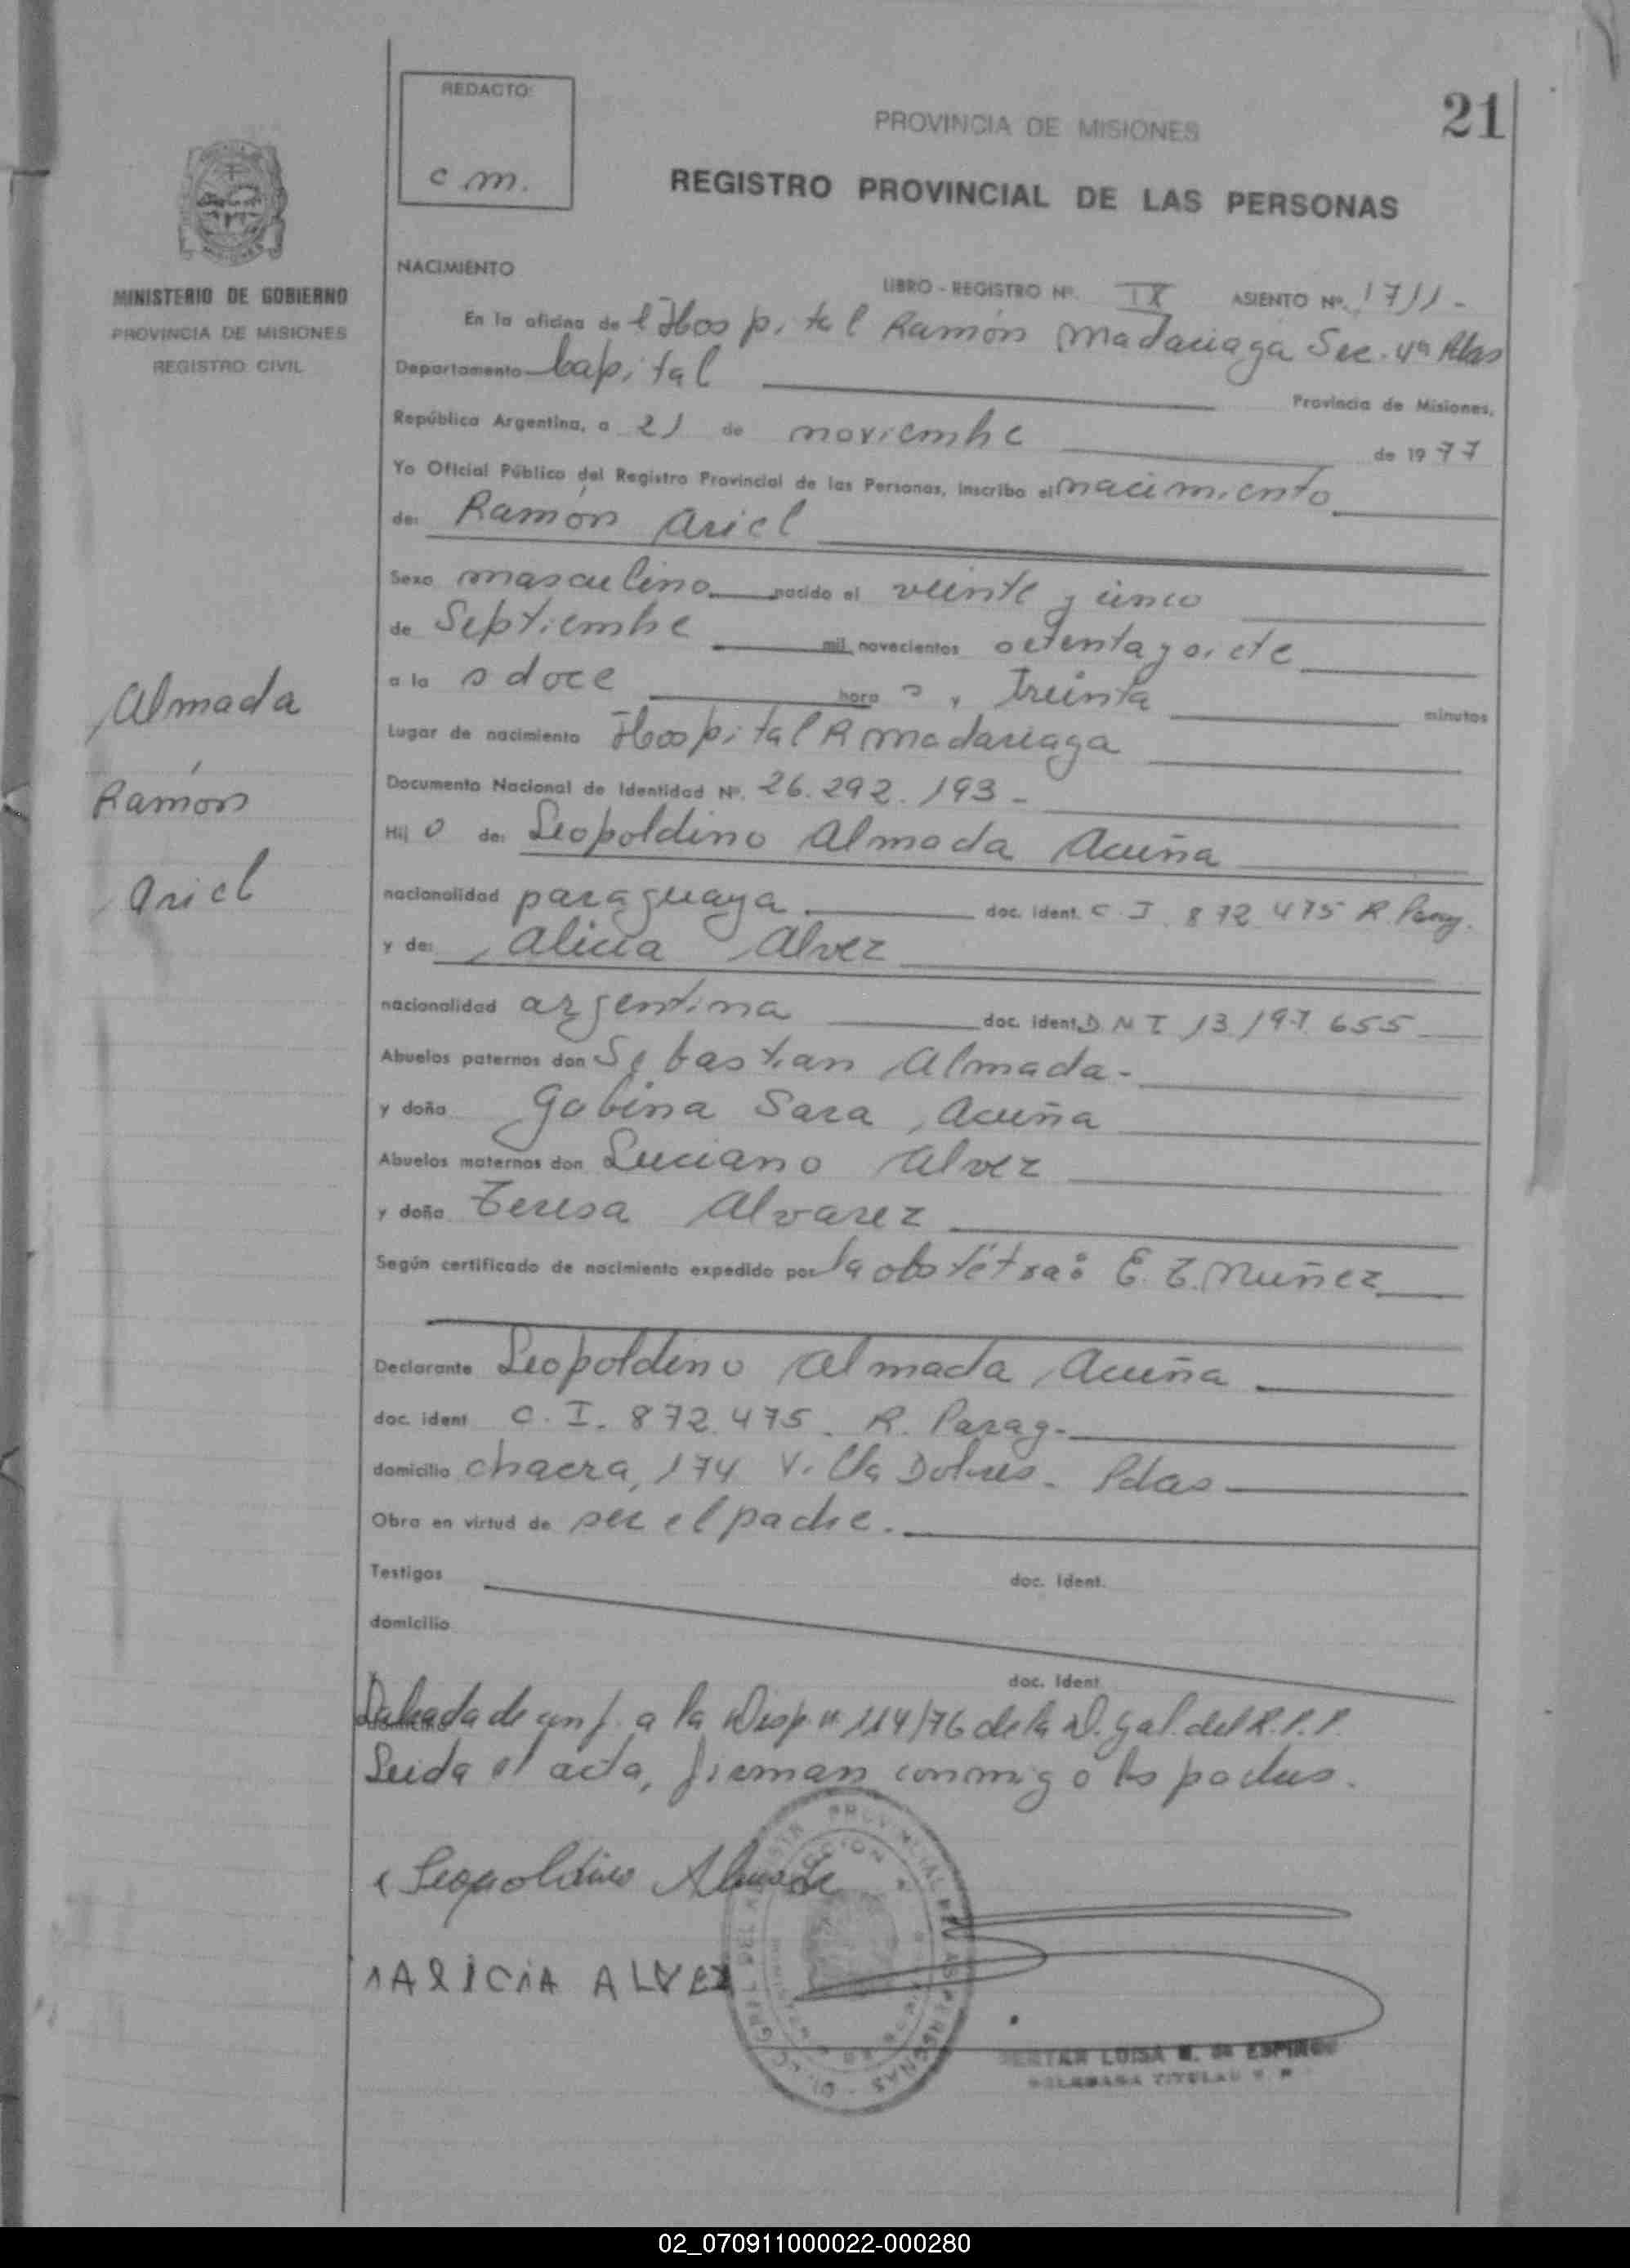 REDACTO:
c m.
PROVINCIA DE MISIONES
21
REGISTRO PROVINCIAL DE LAS PERSONAS
MINISTERIO DE GOBIERNO
PROVINCIA DE MISIONES
REGISTRO CIVIL
NACIMIENTO
LIBRO - REGISTRO Nº. IX ASIENTO Nº. 1711 -
En la oficina de l Hospital Ramón Madariaga Sec. 4ª Pdas
Departamento Capital Provincia de Misiones,
República Argentina, a 21 de noviembre de 1977
Yo Oficial Público del Registro Provincial de las Personas, inscribo el nacimiento
de: Ramón Ariel
Sexo masculino nacido el veinte y cinco
de Septiembre mil novecientos setenta y siete
a la s doce hora s y treinta minutos
Lugar de nacimiento Hospital R Madariaga
Documento Nacional de Identidad Nº. 26.292.193 -
Hij o de: Leopoldino Almada Acuña
nacionalidad paraguaya doc. ident. C.I. 872.475 R. Parag.
y de: Alicia Alvez
nacionalidad argentina doc. ident. DNI 13.197.655
Abuelos paternos don Sebastian Almada -
y doña Gabina Sara Acuña
Abuelos maternos don Luciano Alvez
y doña Teresa Alvarez
Según certificado de nacimiento expedido por la obstétra: E. T. Nuñez
Declarante Leopoldino Almada Acuña
doc. ident C.I. 872.475. R. Parag.
domicilio chacra 174 Villa Dolores - Pdas
Obra en virtud de ser el padre.
Testigos doc. ident.
domicilio
doc. ident
domicilio
Labrada de conf. a la Disp. nº 114/76 de la D. Gal. del R.P.P.
Leida el acta, firman conmigo los padres.
Leopoldino Almada
ALICIA ALVEZ
Almada
Ramón
Ariel
LUISA
TITULAR
02_070911000022-000280